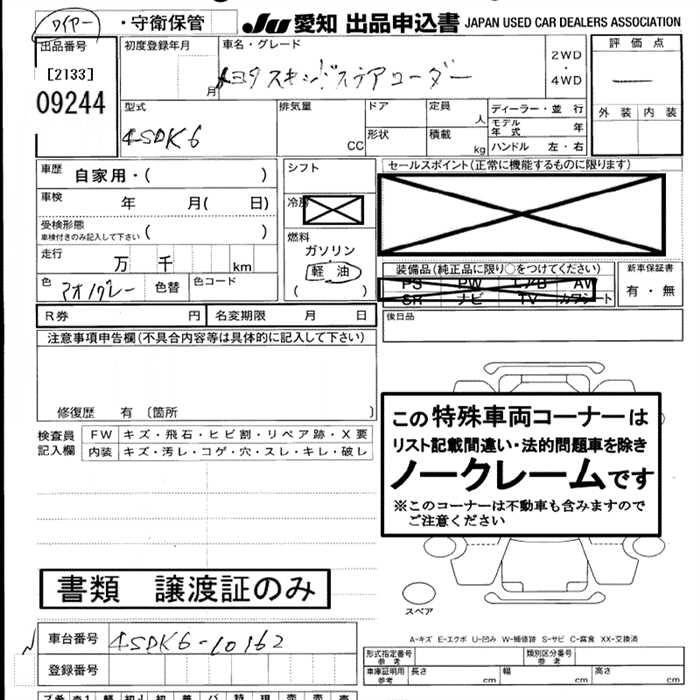 ワイヤー ・守衛保管
JU 愛知 出品申込書 JAPAN USED CAR DEALERS ASSOCIATION
出品番号
[2133]
09244
初度登録年月
月
車名・グレード
トヨタスキッドステアローダー
2WD
・
4WD
評価点
外装 内装
型式
4SDK6
排気量
CC
ドア
形状
定員
人
積載
kg
ディーラー・並行
モデル年式 年
ハンドル 左・右
車歴
自家用・( )
車検
年 月( 日)
受検形態
車検付きのみ記入して下さい ( )
走行
万 千 km
色
アオ/グレー
色替
色コード
シフト
冷房
燃料
ガソリン
軽油
( )
セールスポイント(正常に機能するものに限ります)
装備品(純正品に限り○をつけてください)
PS PW エアB AW
SR ナビ TV カワシート
新車保証書
有・無
R券 円
名変期限 月 日
後日品
注意事項申告欄(不具合内容等は具体的に記入して下さい)
修復歴 有 〔箇所 〕
検査員
記入欄
FW キズ・飛石・ヒビ割・リペア跡・X要
内装 キズ・汚レ・コゲ・穴・スレ・キレ・破レ
この特殊車両コーナーは
リスト記載間違い・法的問題車を除き
ノークレームです
※このコーナーは不動車も含みますので
ご注意ください
書類 譲渡証のみ
スペア
A-キズ E-エクボ U-凹み W-補修跡 S-サビ C-腐食 XX-交換済
車台番号
4SDK6-10162
登録番号
形式指定番号
参考
類別区分番号
車庫証明用
参考
長さ cm
幅 cm
高さ cm